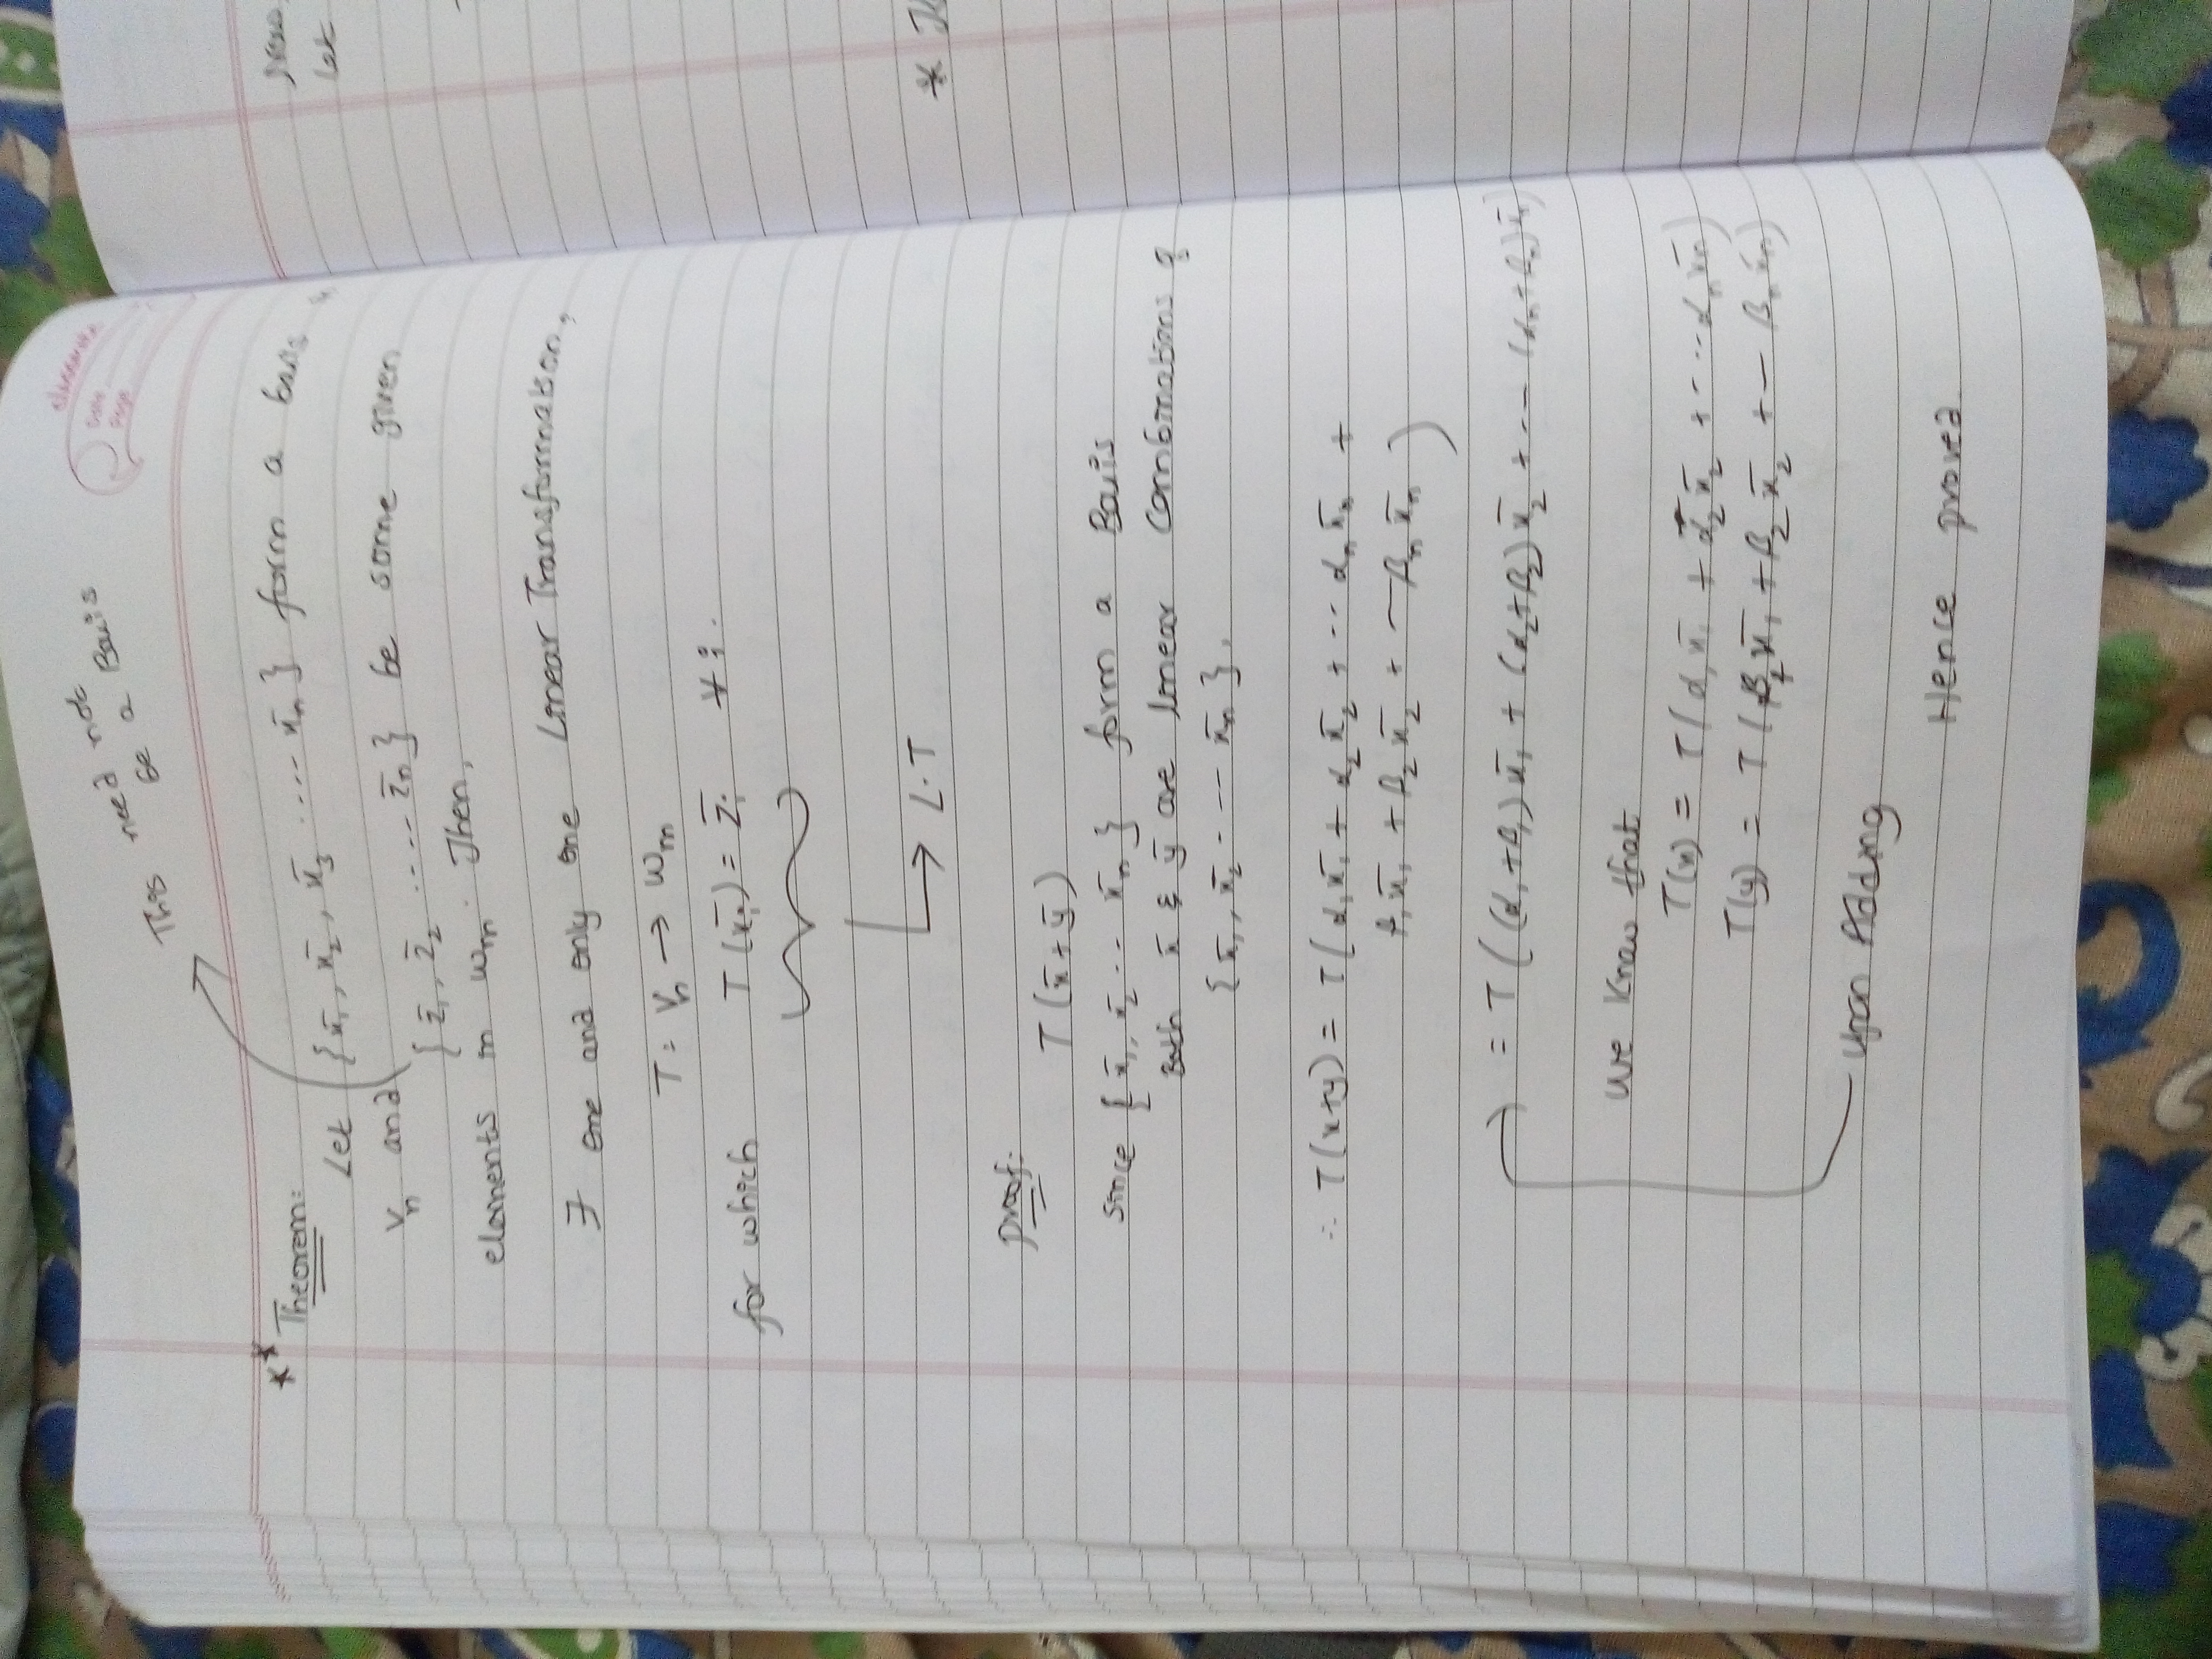 classmate
Date
Page
This need not
be a Basis
** Theorem:
Let {x̄₁, x̄₂, x̄₃ ..... x̄ₙ} form a basis
Vₙ and
{z̄₁, z̄₂ ..... z̄ₙ} be some given
elements in Wₘ. Then,
∃ one and only one Linear Transformation,
T: Vₙ → Wₘ
for which T(x̄ᵢ) = z̄ᵢ ∀ i.
→ L.T
Proof:
T(x̄+ȳ)
Since {x̄₁, x̄₂ ... x̄ₙ} form a Basis
Both x̄ & ȳ are linear Combinations of
{x̄₁, x̄₂ - - - x̄ₙ}.
∴ T(x+y) = T(α₁x̄₁ + α₂x̄₂ + ... αₙx̄ₙ +
β₁x̄₁ + β₂x̄₂ + -- βₙx̄ₙ)
= T((α₁+β₁)x̄₁ + (α₂+β₂)x̄₂ + -- (αₙ+βₙ)x̄ₙ)
We Know that
T(x) = T(α₁x̄₁ + α₂x̄₂ + ... αₙx̄ₙ)
T(y) = T(β₁x̄₁ + β₂x̄₂ + -- βₙx̄ₙ)
Upon Adding
Hence proved
Let
*